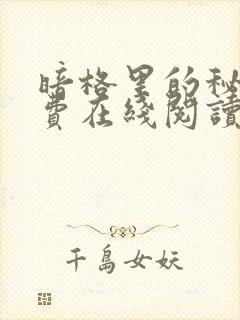 暗格里的秘
费在线阅读
千岛女妖